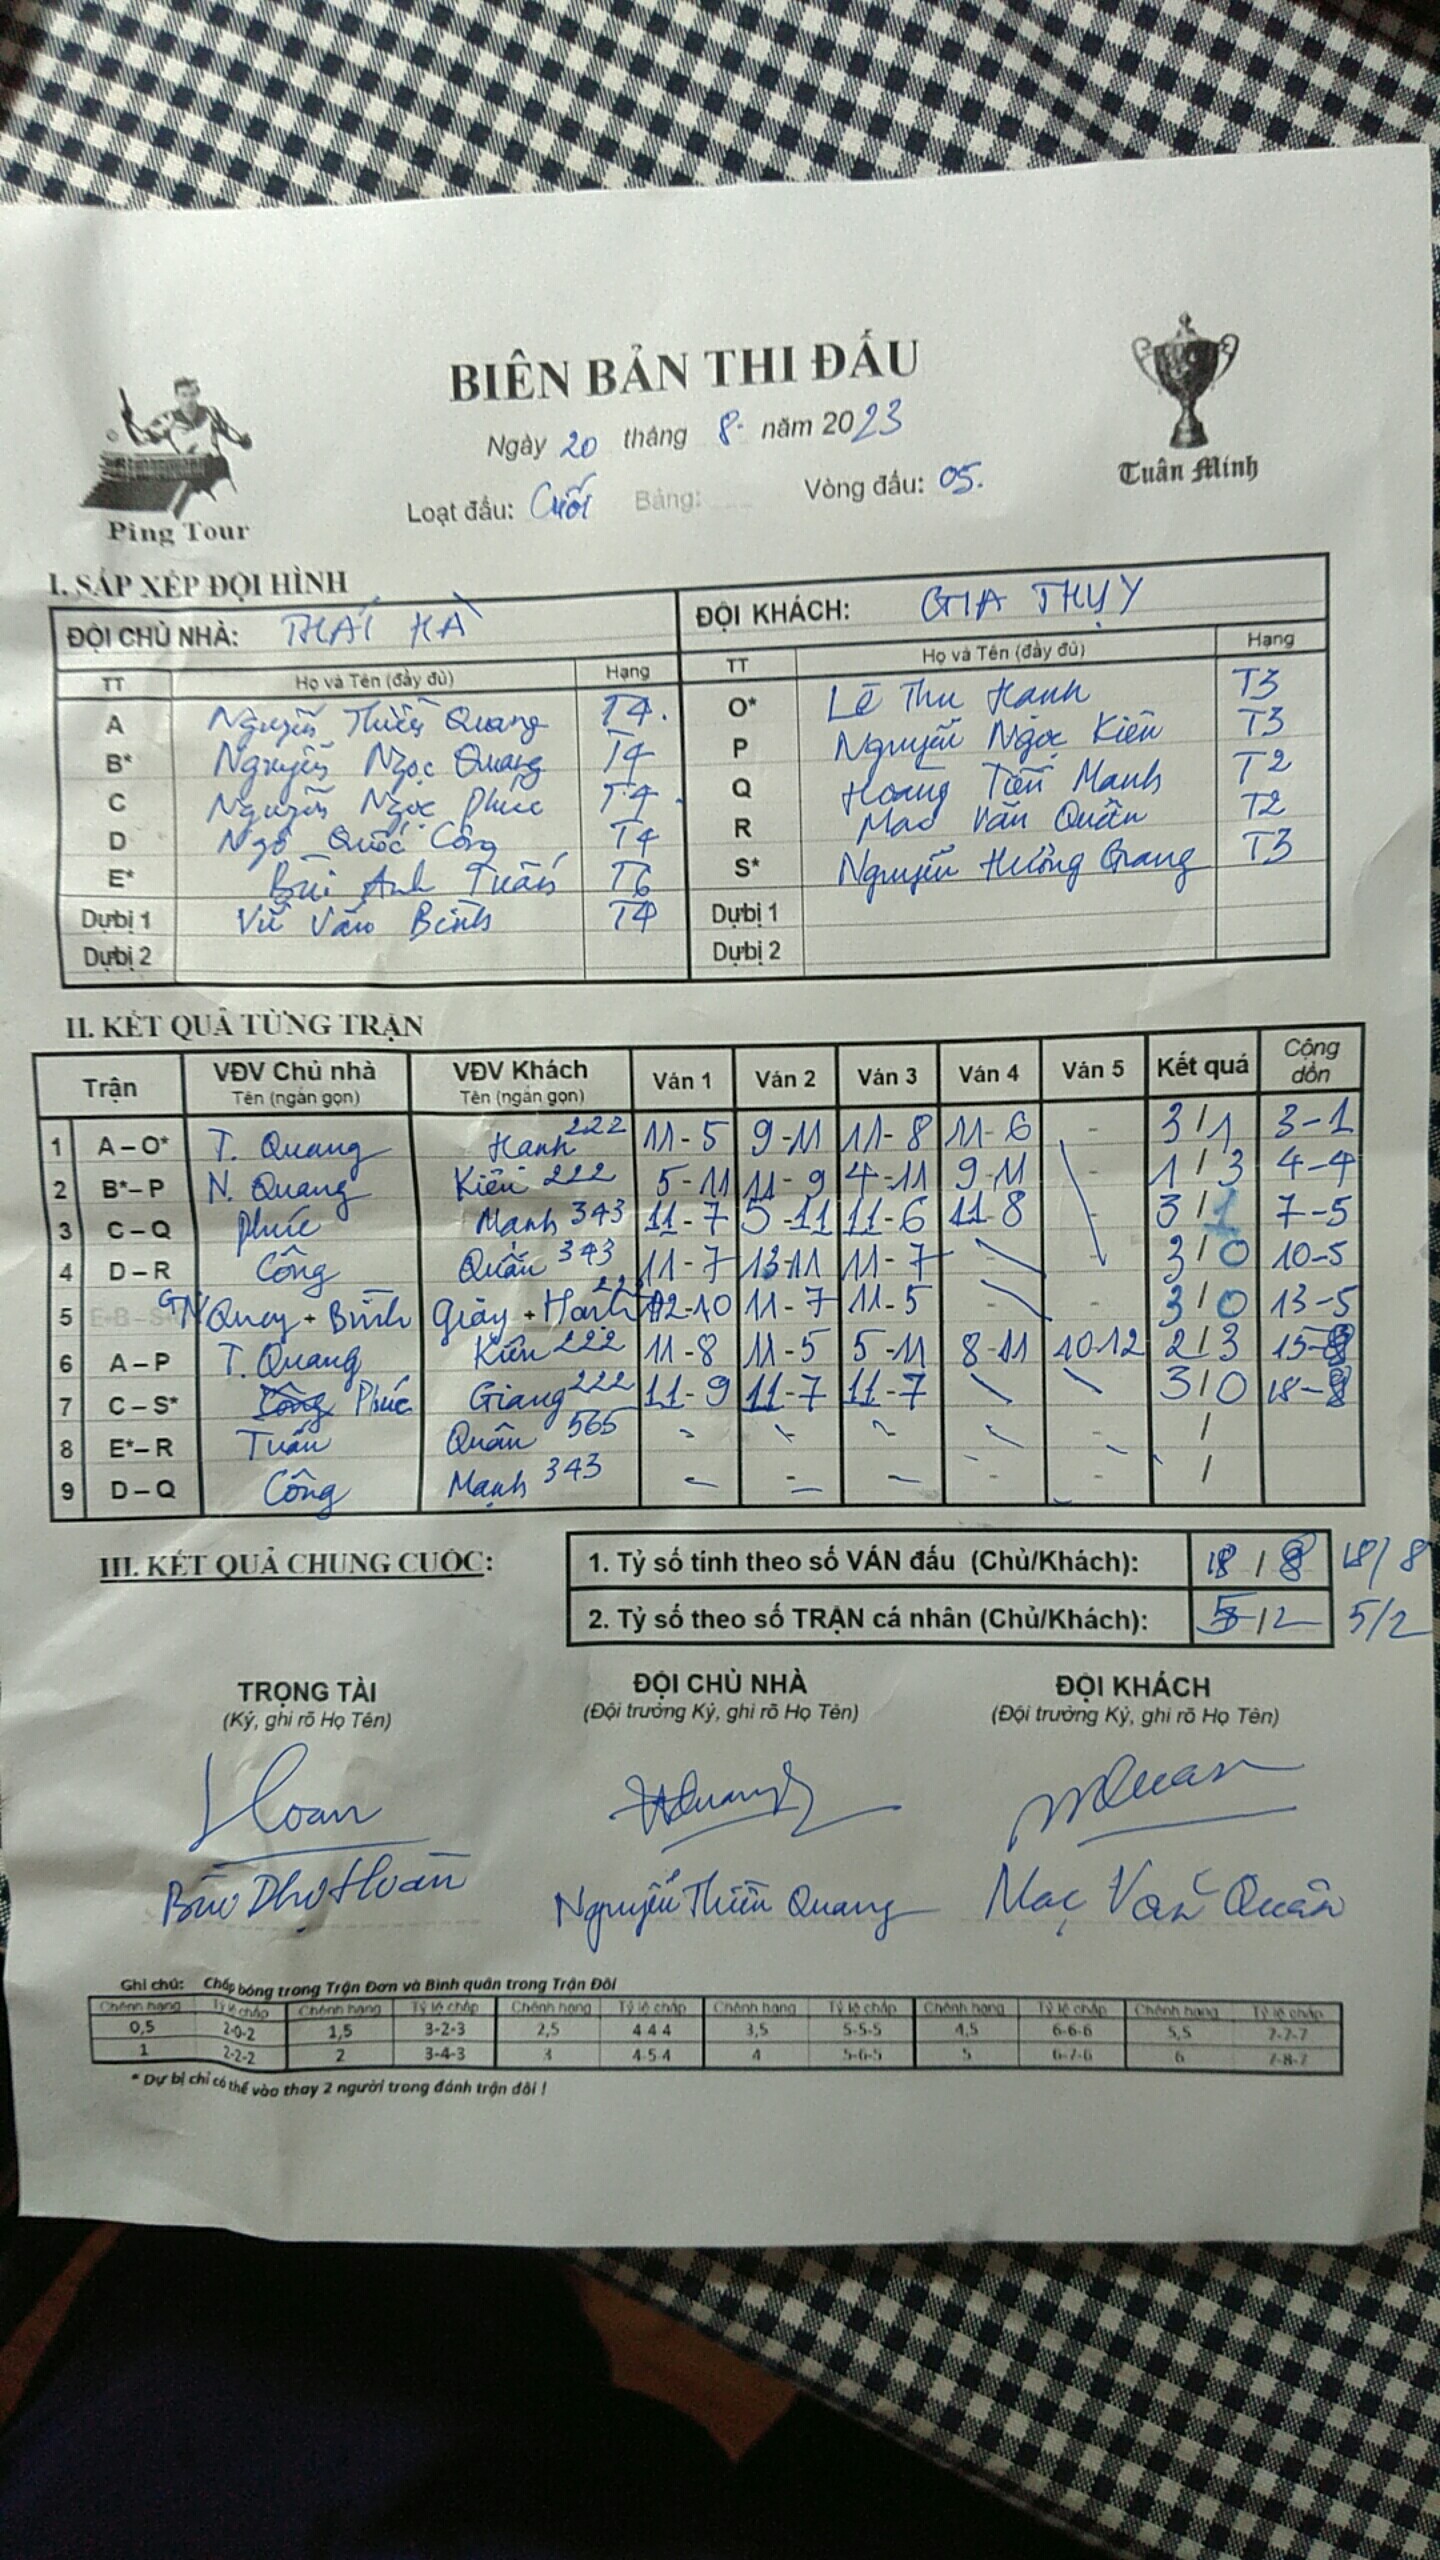 BIÊN BẢN THI ĐẤU
Ngày 20 tháng 8 năm 2023
Loạt đấu: Cuối Bảng: Vòng đấu: 05.
Ping Tour
Tuấn Minh
I. SẮP XẾP ĐỘI HÌNH
ĐỘI CHỦ NHÀ: THÁI HÀ ĐỘI KHÁCH: GIA THỤY
TT Họ và Tên (đầy đủ) Hạng TT Họ và Tên (đầy đủ) Hạng
A Nguyễn Thiều Quang T4. O* Lê Thu Hanh T3
B* Nguyễn Ngọc Quang T4 P Nguyễn Ngọc Kiên T3
C Nguyễn Ngọc Phúc T4 Q Hoàng Tiến Mạnh T2
D Ngô Quốc Công T4 R Mac Văn Quân T2
E* Bùi Anh Tuấn T6 S* Nguyễn Hương Giang T3
Dựbị 1 Vũ Văn Bình T4 Dựbị 1
Dựbị 2 Dựbị 2
II. KẾT QUẢ TỪNG TRẬN
Trận VĐV Chủ nhà Tên (ngắn gọn) VĐV Khách Tên (ngắn gọn) Ván 1 Ván 2 Ván 3 Ván 4 Ván 5 Kết quả Cộng dồn
1 A – O* T. Quang Hanh 222 11-5 9-11 11-8 11-6 - 3/1 3-1
2 B* – P N. Quang Kiên 222 5-11 11-9 4-11 9-11 - 1/3 4-4
3 C – Q Phúc Mạnh 343 11-7 5-11 11-6 11-8 - 3/1 7-5
4 D – R Công Quân 343 11-7 13-11 11-7 3/0 10-5
5 E+B – S+ N Quag + Bình Giág + Hanh 12-10 11-7 11-5 - - 3/0 13-5
6 A – P T. Quang Kiên 222 11-8 11-5 5-11 8-11 10-12 2/3 15-8
7 C – S* Phúc Giang 222 11-9 11-7 11-7 3/0 18-8
8 E* – R Tuấn Quân 565 - - - - - /
9 D – Q Công Mạnh 343 - - - - - /
III. KẾT QUẢ CHUNG CUỘC:
1. Tỷ số tính theo số VÁN đấu (Chủ/Khách): 18 / 8 18/8
2. Tỷ số theo số TRẬN cá nhân (Chủ/Khách): 5/2 5/2
TRỌNG TÀI ĐỘI CHỦ NHÀ ĐỘI KHÁCH
(Ký, ghi rõ Họ Tên) (Đội trưởng Ký, ghi rõ Họ Tên) (Đội trưởng Ký, ghi rõ Họ Tên)
Hoan Quang Quan
Hoàn Nguyễn Thiều Quang Mạc Văn Quân
Ghi chú: Chấp bóng trong Trận Đơn và Bình quân trong Trận Đôi
Chênh hạng Tỷ lệ chấp Chênh hạng Tỷ lệ chấp Chênh hạng Tỷ lệ chấp Chênh hạng Tỷ lệ chấp Chênh hạng Tỷ lệ chấp Chênh hạng Tỷ lệ chấp
0,5 2-0-2 1,5 3-2-3 2,5 4-4-4 3,5 5-5-5 4,5 6-6-6 5,5 7-7-7
1 2-2-2 2 3-4-3 3 4-5-4 4 5-6-5 5 6-7-6 6 7-8-7
* Dự bị chỉ có thể vào thay 2 người trong đánh trận đôi !